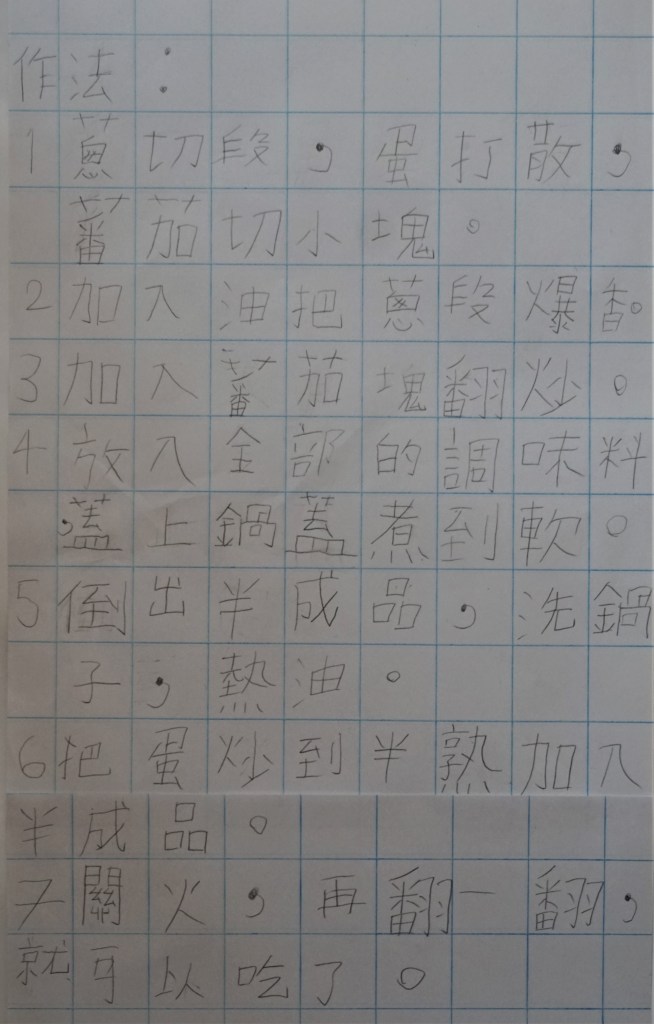 作法：
1蔥切段，蛋打散，
蕃茄切小塊。
2加入油把蔥段爆香。
3加入蕃茄塊翻炒。
4放入全部的調味料
，蓋上鍋蓋煮到軟。
5倒出半成品，洗鍋
子，熱油。
6把蛋炒到半熟加入
半成品。
7關火，再翻一翻，
就可以吃了。